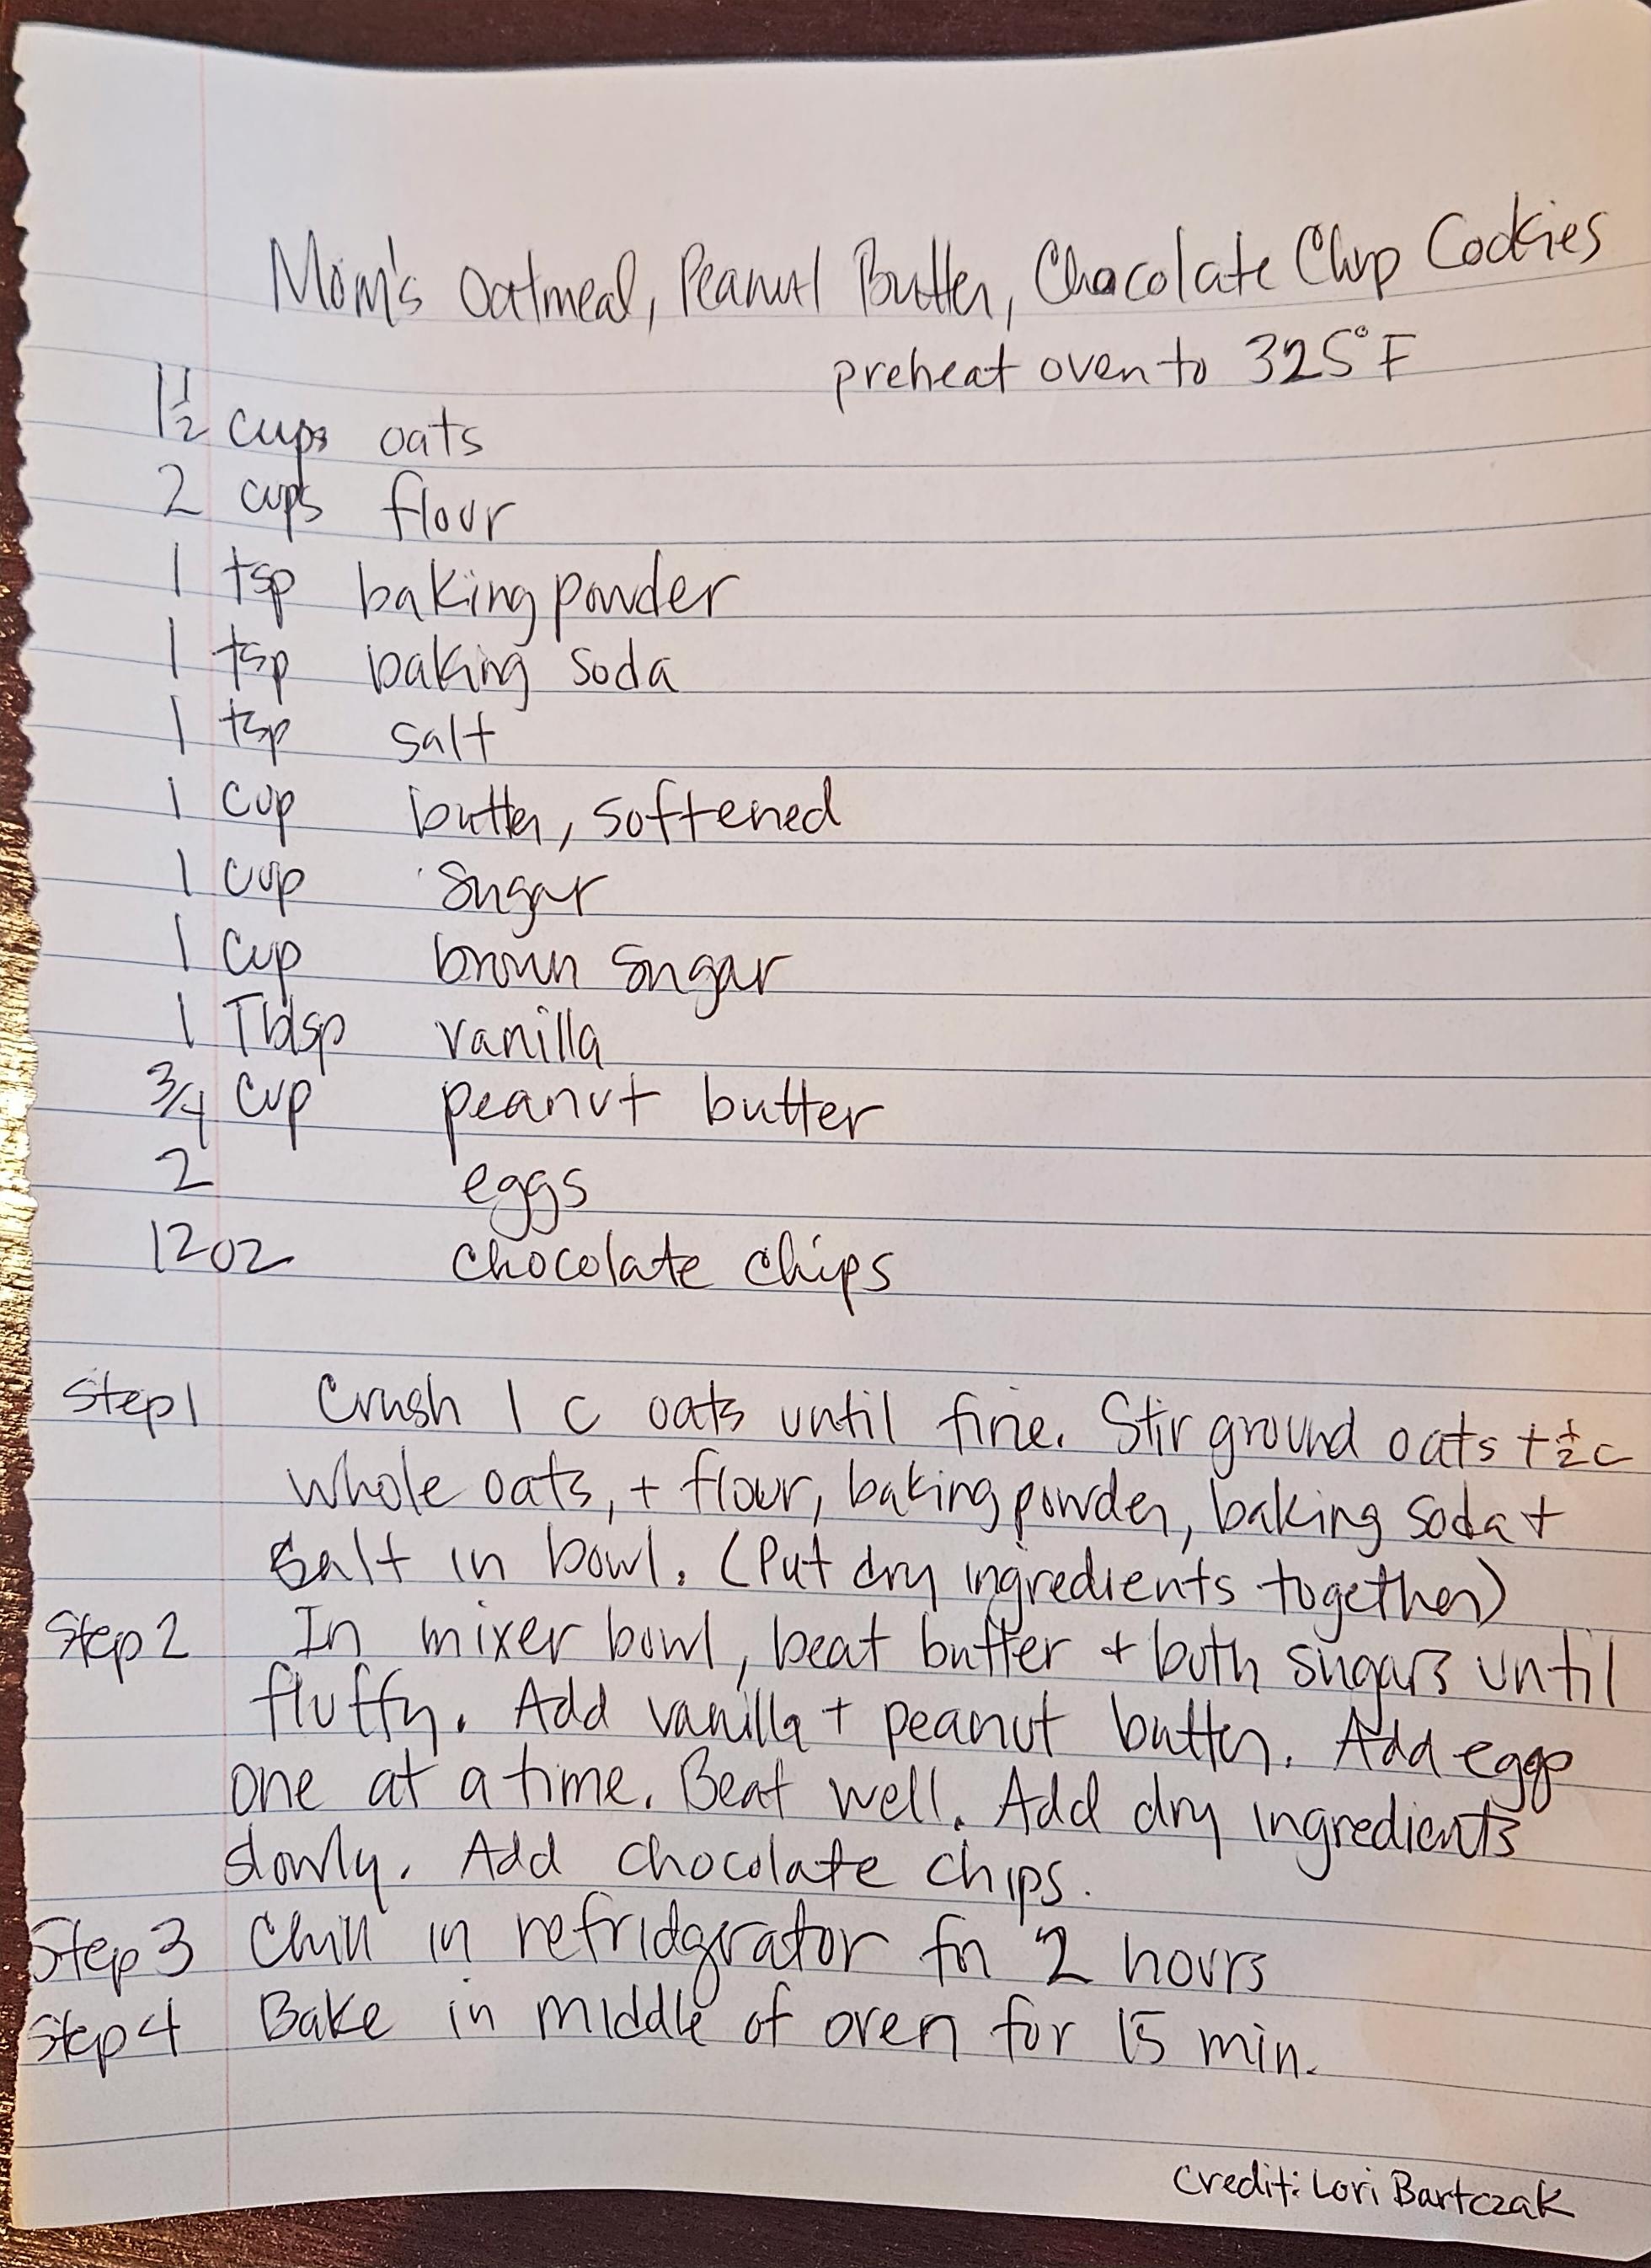 Mom's Oatmeal, Peanut Butter, Chocolate Chip Cookies
preheat oven to 325°F
1 1/2 cups oats
2 cups flour
1 tsp baking powder
1 tsp baking soda
1 tsp salt
1 cup butter, softened
1 cup sugar
1 cup brown sugar
1 Tblsp vanilla
3/4 cup peanut butter
2 eggs
12 oz chocolate chips
Step 1 Crush 1 c oats until fine. Stir ground oats + 1/2 c
whole oats, + flour, baking powder, baking soda +
salt in bowl. (Put dry ingredients together)
Step 2 In mixer bowl, beat butter + both sugars until
fluffy. Add vanilla + peanut butter. Add eggs
one at a time. Beat well. Add dry ingredients
slowly. Add chocolate chips.
Step 3 Chill in refridgerator for 2 hours
Step 4 Bake in middle of oven for 15 min.
Credit: Lori Bartczak